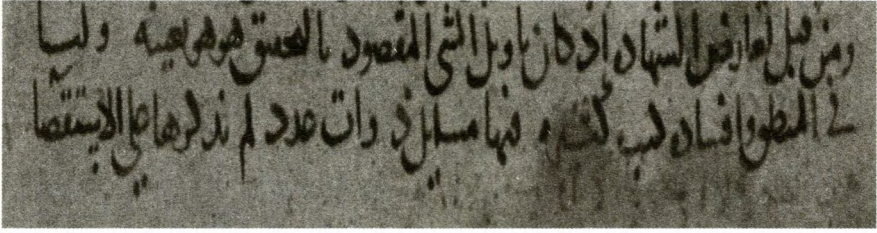 ومن قبل تعارض الشهاد اذ كان تاويل الشى المقصود بالتحقيق هو هو بعينه ولنا
فى المنطق وافساده كتب كثيره فيها مسايل ذوات عدد لم نذكرها على الاستقصا